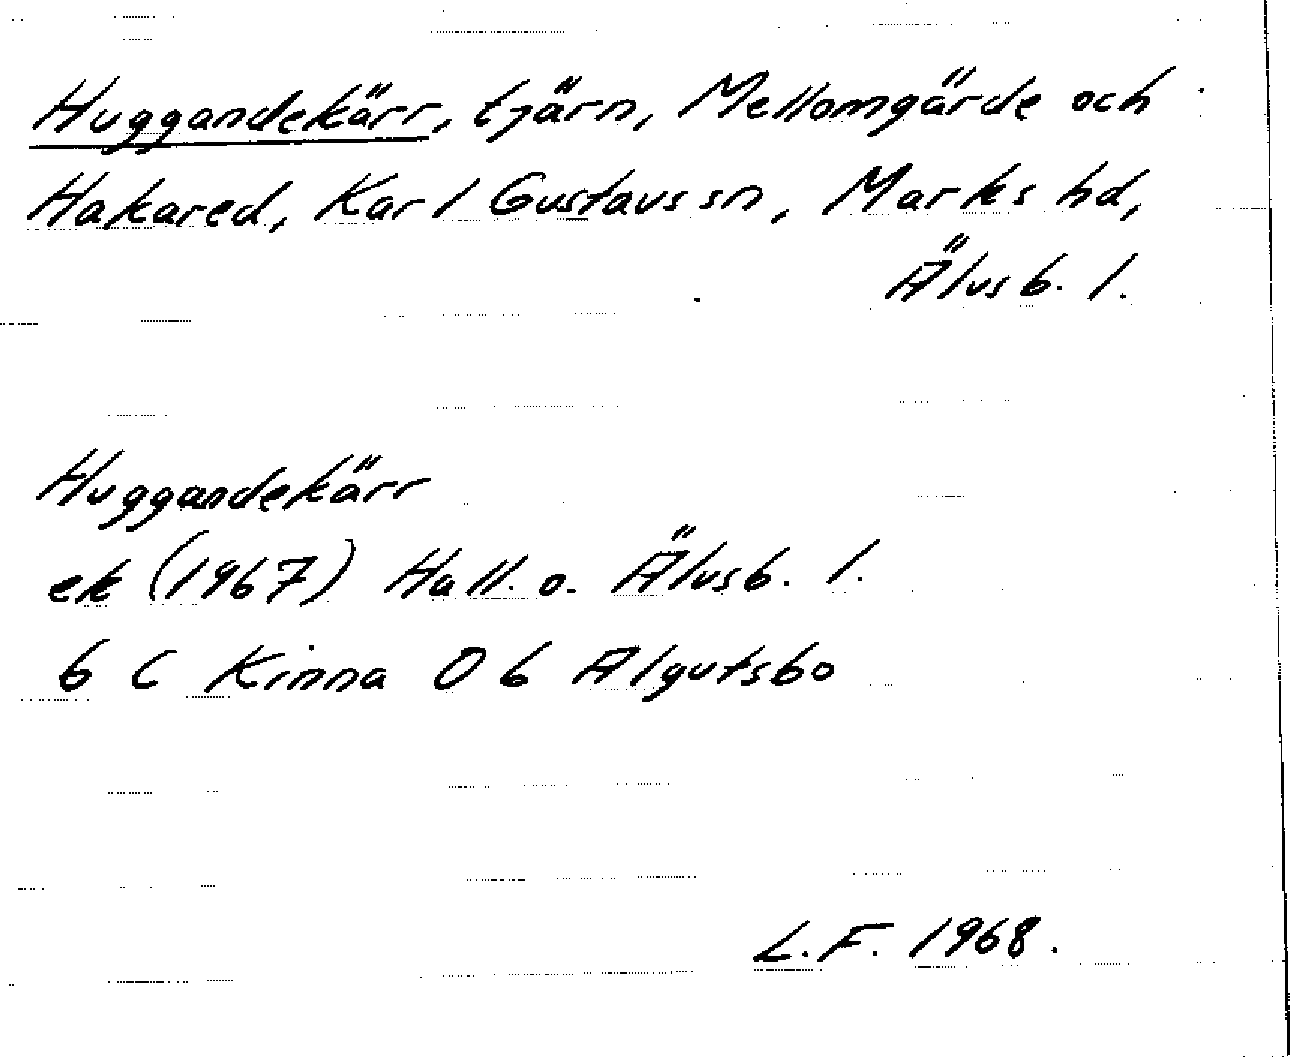 Huggandekärr, tjärn, Mellomgärde och
Hakared, Karl Gustavs sn, Marks hd,
Älvsb. l.
Huggandekärr
ek (1967) Hall. o. Älvsb. l.
6 C Kinna 0 b Algutsbo
L.F. 1968.